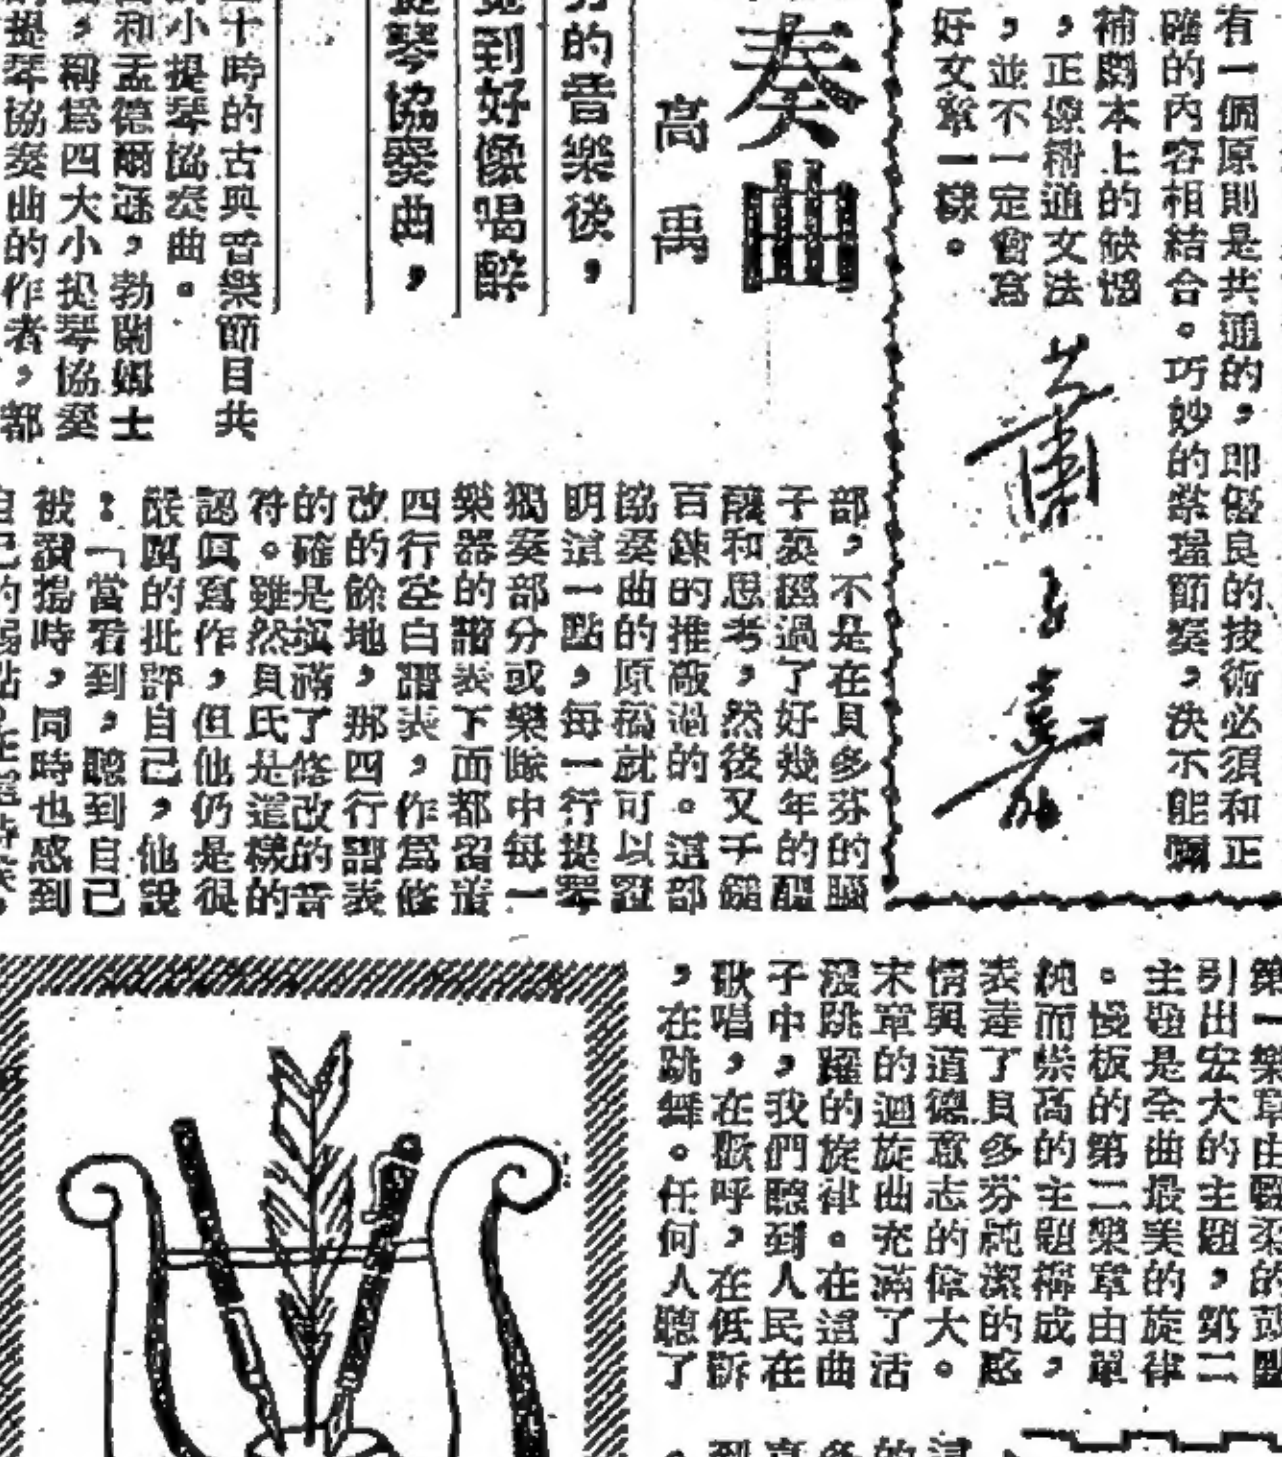 有一個原則是共通的，即優良的技術必須和正
確的內容相結合。巧妙的紮瑙節奏，決不能彌
補劇本上的缺憾
，正像精通文法
，並不一定會寫
好文章一樣。
奏曲
高禹
的音樂後，
覺到好像喝醉
提琴協奏曲，
十時的古典音樂節目共
小提琴協奏曲。
和孟德爾遜，勃蘭姆士
，稱爲四大小提琴協奏
提琴協奏曲的作者，都
部，不是在貝多芬的腦
子裏經過了好幾年的醞
釀和思考，然後又千錘
百鍊的推敲過的。這部
協奏曲的原稿就可以證
明這一點，每一行提琴
獨奏部分或樂隊中每一
樂器的譜表下面都留着
四行空白譜表，作爲修
改的餘地，那四行譜表
的確是填滿了修改的音
符。雖然貝氏是這樣的
認真寫作，但他仍是很
嚴厲的批評自己，他說
：「當看到，聽到自己
被讚揚時，同時也感到
自己的弱點
第一樂章由輕柔的鼓點
引出宏大的主題，第二
主題是全曲最美的旋律
。慢板的第二樂章由單
純而崇高的主題構成，
表達了貝多芬純潔的感
情與道德意志的偉大。
末章的迴旋曲充滿了活
潑跳躍的旋律。在這曲
子中，我們聽到人民在
歌唱，在歡呼，在低訴
，在跳舞。任何人聽了